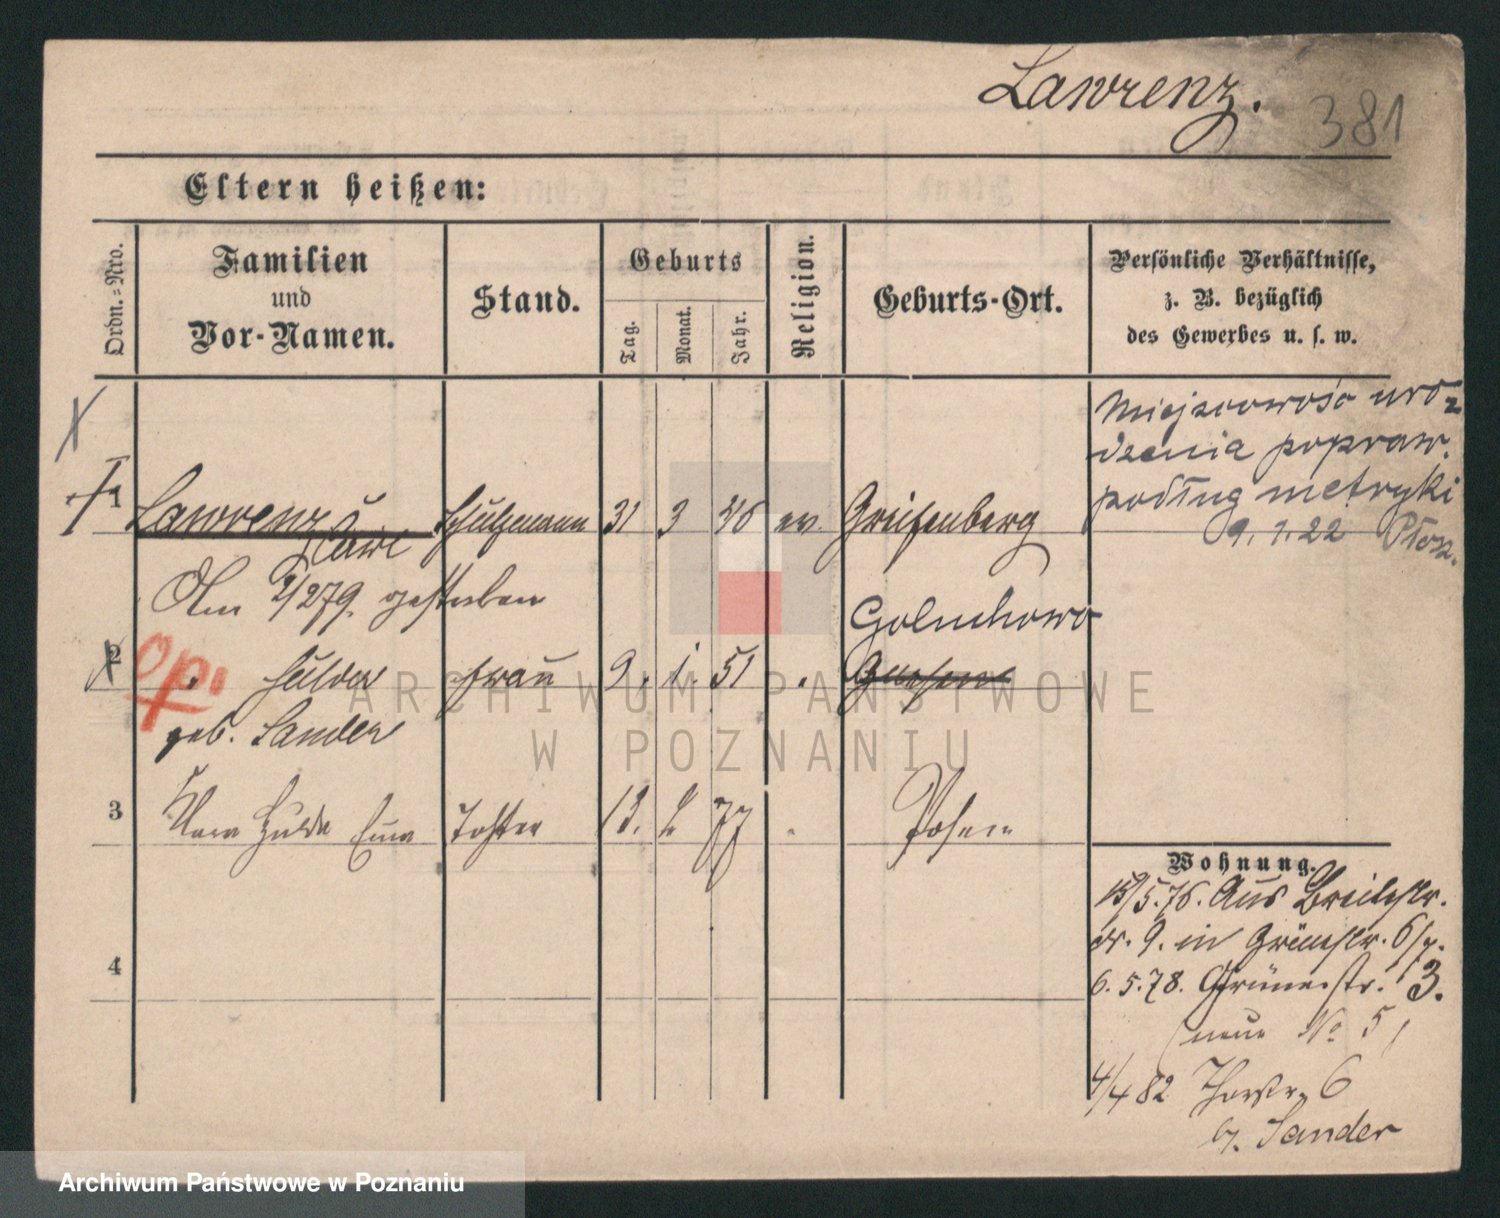 Lawrenz.
381
Eltern heißen:
Ordn.=Nro.
Familien
und
Vor-Namen.
Stand.
Geburts
Tag.
Monat.
Jahr.
Religion.
Geburts-Ort.
Persönliche Verhältnisse,
z. B. bezüglich
des Gewerbes u. s. w.
Miejscowość uro-
dzenia popraw.
podług metryki
9.1.22
1 Lawrenz Carl Schutzmann 31 3 46 ev. Greifenberg
Am 2/2 79. gestorben
Goluchowo
2 " Hulda Frau 9. 1. 51 " Gnesen
op.
geb. Sander
3 Clara Hulda Emma Tochter 13. 2 77 " Posen
4
Wohnung.
15/5.76. Aus Breitestr.
Nr. 9. in Grünestr. 6/7.
6.5.78. Grünestr. 3.
(neue No 5)
4/4 82 Thorstr. 6
b. Sander
ARCHIWUM PAŃSTWOWE
W POZNANIU
Archiwum Państwowe w Poznaniu